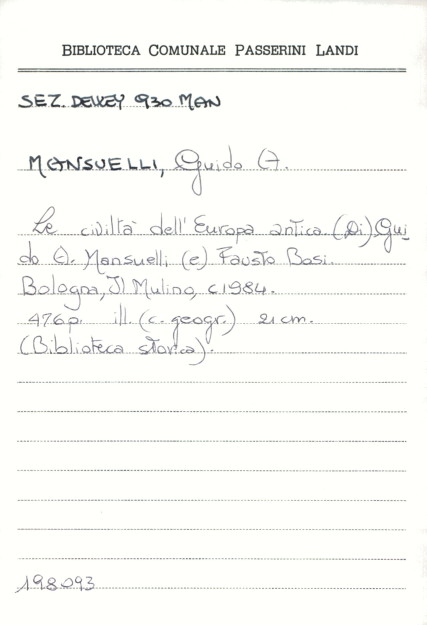 BIBLIOTECA COMUNALE PASSERINI LANDI
SEZ. DEWEY 930 MAN
MANSUELLI, Guido A.
Le civiltà dell'Europa antica. (Di) Gui
do A. Mansuelli (e) Fausto Bosi.
Bologna, Il Mulino, c1984.
476p. ill. (c. geogr.) 21 cm.
(Biblioteca storica).
198093